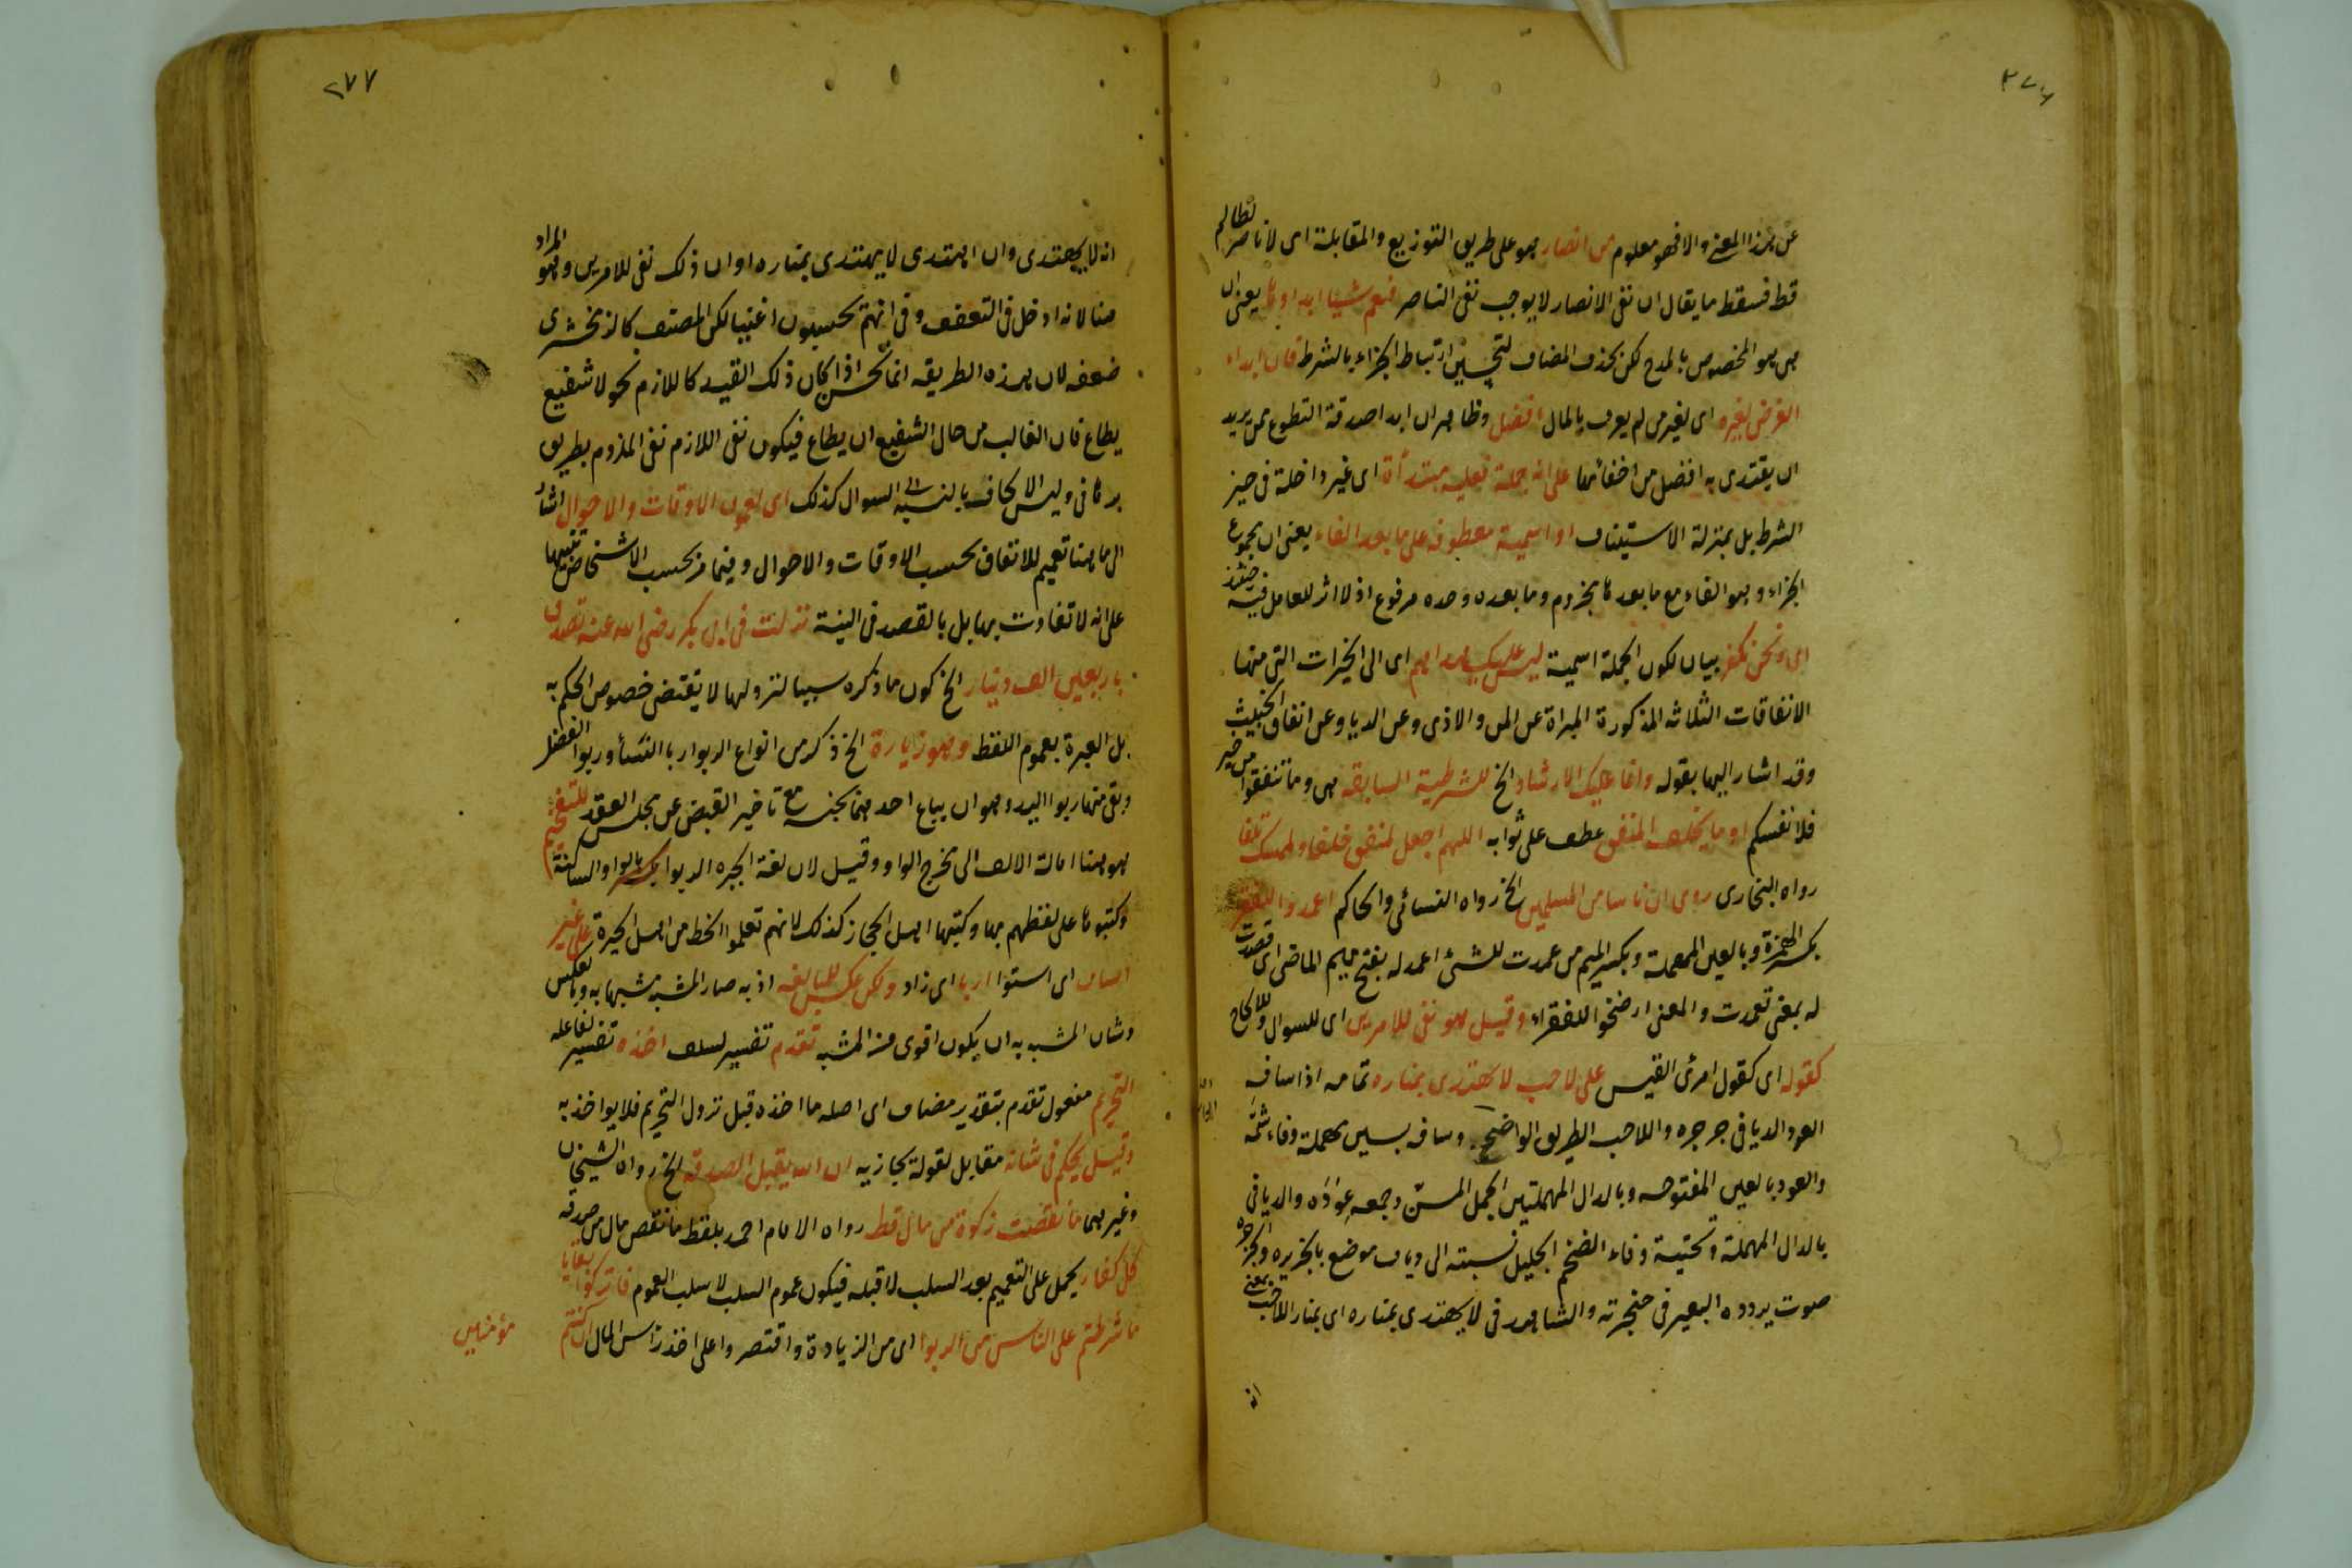 ٢٧٦
عن هذا المعنى والا فهو معلوم من انصار هو على طريق التوزيع والمقابلة اى لا ناصر لظالم
قط فسقط ما يقال ان نفى الانصار لا يوجب نفى الناصر فنعم شيئا ابداوها يعنى ان
هى هو المخصوص بالمدح لكن بحذف المضاف لتحسين ارتباط الجزاء بالشرط فان ابداء
الفرض لغيره اى لغير من لم يعرف بالمال افضل وظاهر ان ابداء صدقة التطوع ممن يريد
ان يقتدى به افضل من اخفائها على انه جملة فعلية مبتدأة اى غير داخلة فى حيز
الشرط بل بمنزلة الاستيناف او اسمية معطوفة على ما بعد الفاء يعنى ان مجموع
الجزاء وهو الفاء مع ما بعدها مجزوم وما بعده وحده مرفوع اذ لا اثر للعامل فيه حينئذ
اى ونحن نكفر بيان لكون الجملة اسمية ليس عليك هداهم اى الى الخيرات التى منها
الانفاقات الثلاثة المذكورة المبراة عن المن والاذى وعن الريا وعن انفاق الخبيث
وقد اشار اليها بقوله وانما عليك الارشاد الخ للشرطية السابقة هى وما تنفقوا من خير
فلانفسكم او ما يخلف المنفق عطف على ثوابه اللهم اجعل لمنفق خلفا ولممسك تلفا
رواه البخارى روى ان ناسا من المسلمين الخ رواه النسائى والحاكم اعمدوا للفقراء
بكسر الهمزة وبالعين المهملة وبكسر الميم من عمدت للشئ اعمد له بفتح ميم الماضى اى قصدت
له بمعنى تعمدت والمعنى ارضخوا للفقراء وقيل هو نفى للامرين اى للسوال وللالحاح
كقوله اى كقول امرئ القيس على لاحب لا يهتدى بمناره تمامه اذا سافه
العود الديافى جرجره واللاحب الطريق الواضح وسافه بسين مهملة وفاء شمه
والعود بالعين المفتوحه وبالدال المهملتين الجمل المسن وجمعه عودة والديافى
بالدال المهملة وتحتية وفاء الضخم الجليل نسبته الى دياف موضع بالجزيره والجرجرة
صوت يردده البعير فى حنجرته والشاهد فى لا يهتدى بمناره اى بمنار اللاحب بمعنى
انه
٢٧٧
انه لا يهتدى وان اهتدى لا يهتدى بمناره او ان ذلك نفى للامرين وهو المراد
هنا لانه ادخل فى التعفف وفى انهم يحسبون اغنيا لكن المصنف كالزمخشرى
ضعفه لان هذه الطريقه انما تحسن اذا كان ذلك القيد كاللازم نحو لا شفيع
يطاع فان الغالب من حال الشفيع ان يطاع فيكون نفى اللازم نفى الملزوم بطريق
برهانى وليس الالحاف بالنسبة الى السوال كذلك اى يعمون الاوقات والاحوال اشار
الى ما هنا تعميم للانفاق بحسب الاوقات والاحوال وفيما مر بحسب الاشخاص تنبيها
على انه لا تفاوت بها بل بالقصد فى النية نزلت فى ابى بكر رضى الله عنه تصدق
باربعين الف دينار الخ كون ما ذكره سببا لنزولها لا يقتضى خصوص الحكم به
بل العبرة بعموم اللفظ وهو زيادة الخ ذكر من انواع الربوا ربا النسأ وربوا الفضل
وبقى منها ربوا اليد وهو ان يباع احدهما بجنسه مع تاخير القبض عن مجلس العقد للتفخيم
هو هنا امالة الالف الى مخرج الواو وقيل لان لغة الحيره الربوا بالواو الساكنة
وكتبوها على لفظهم بها وكتبها اهل الحجاز كذلك لانهم تعلموا الخط من اهل الحيرة على غير
اى استوا اربا اى زاد ولكن عكس للمبالغة اذ به صار المشبه مشبها به وبالعكس
وشان المشبه به ان يكون اقوى من المشبه تقدم تفسير لسلف اخذه تفسير لفاعله
التحريم مفعول تقدم بتقدير مضاف اى اصله ما اخذه قبل نزول التحريم فلا يواخذ به
وقيل يحكم فى شانه مقابل لقوله يجازيه ان الله يقبل الصدقه الخ رواه الشيخان
وغيرهما ما نقصت زكوة من مال قط رواه الامام احمد بلفظ ما نقص مال من صدقه
كل كفار يحمل على التعميم بعد السلب لا قبله فيكون عموم السلب لا سلب العموم فاتركوا بقايا
ما شرطتم على الناس من الربوا اى من الزيادة واقتصروا على اخذ راس المال ان كنتم
مؤمنين